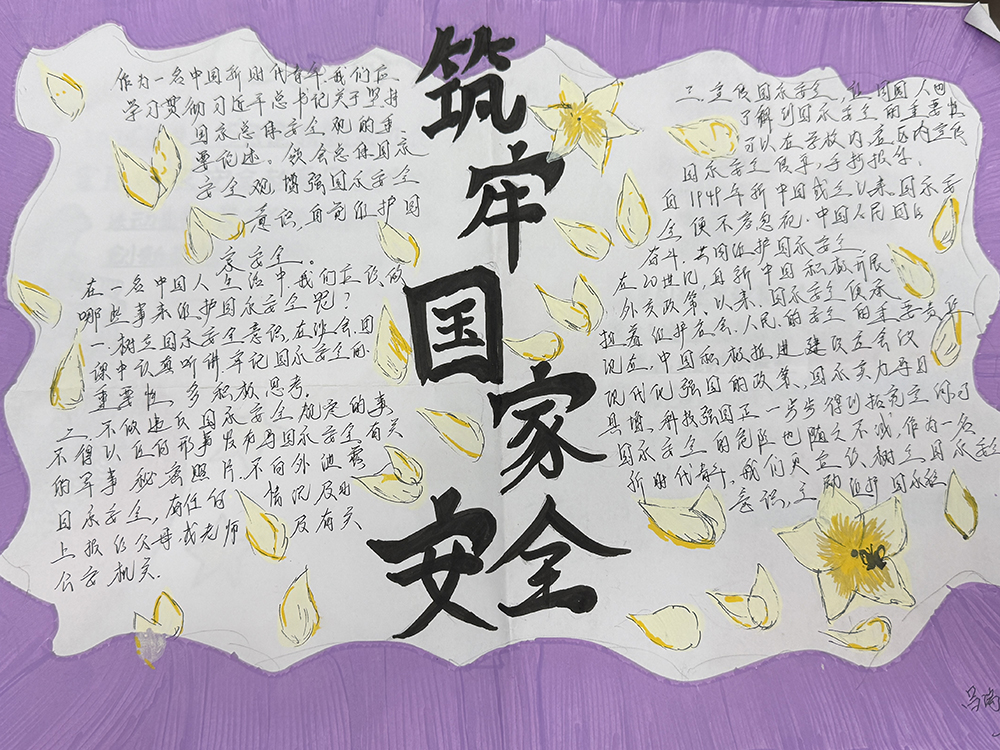 筑牢国家安全
作为一名中国新时代青年,我们应
学习贯彻习近平总书记关于坚持
国家总体安全观的重
要论述。领会总体国家
安全观,增强国家安全
意识,自觉维护国
家安全。
在一名中国人生活中,我们应该做
哪些事来维护国家安全呢?
一.树立国家安全意识,在班会,团
课中认真听讲牢记国家安全的
重要性,多积极思考。
二.不做违反国家安全规定的事,
不得以任何形事发布与国家安全有关
的军事秘密照片,不向外泄露
国家安全,有任何情况及时
上报给父母或老师及有关
公安机关.
三.宣传国家安全,让周围人也
了解到国家安全的重要性
可以在学校内,社区内宣传
国家安全,手抄报等.
自1949年新中国成立以来,国家安
全便不容忽视.中国人民团结
奋斗,共同维护国家安全
在20世纪,自新中国积极开展
外交政策,以来,国家安全便承
担着维护社会,人民,的安全的重要责任
现在,中国积极推进建设社会主义
现代化强国的政策,国家实力与日
具增,科技强国正一步步得到拓充空间,可
国家安全的危险也随之不减,作为一名
新时代青年,我们更应该,树立国家安全
意识,主动维护国家